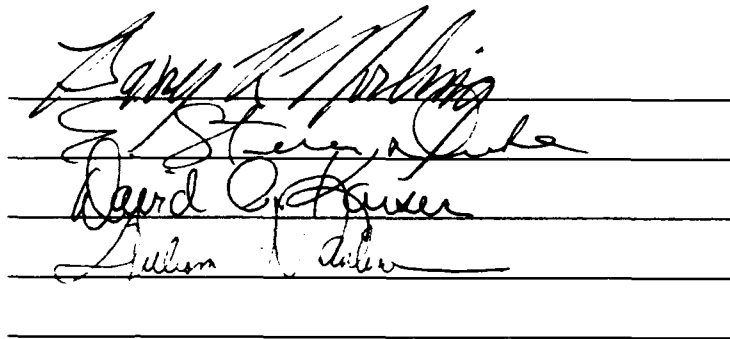 Gary K Norling
E. Steven
David C. Kaiser
William